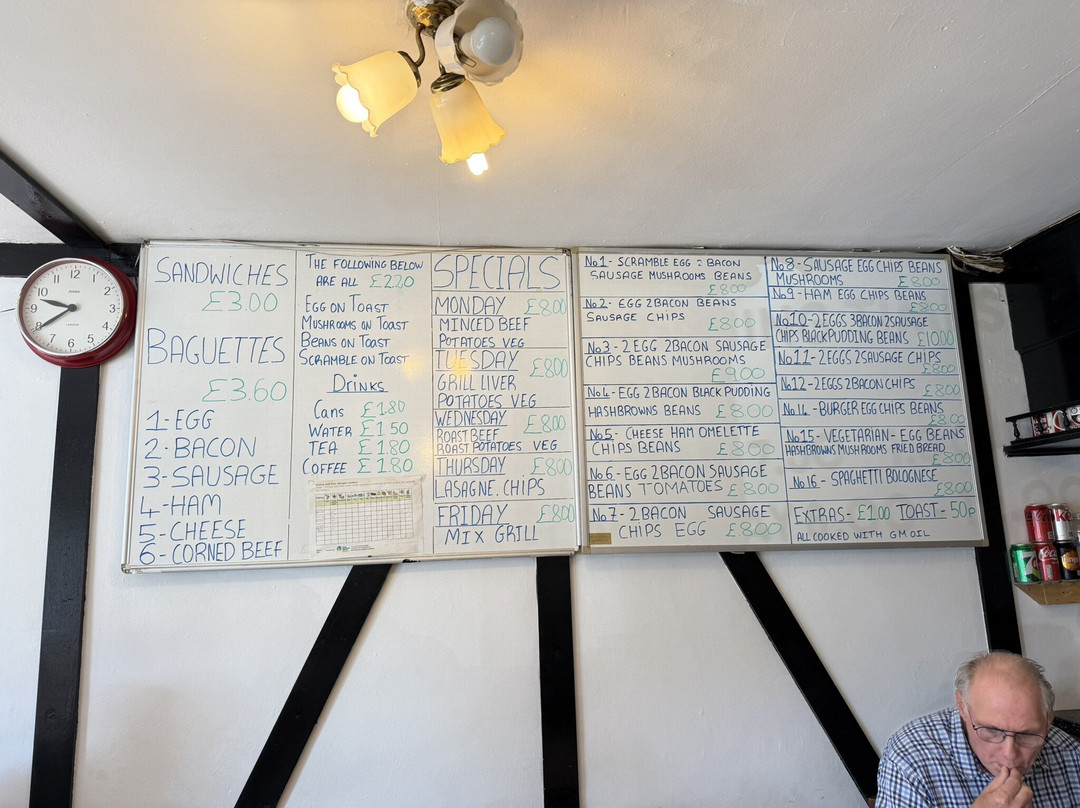 SANDWICHES
£3.00
BAGUETTES
£3.60
1-EGG
2-BACON
3-SAUSAGE
4-HAM
5-CHEESE
6-CORNED BEEF
THE FOLLOWING BELOW
ARE ALL £2.20
EGG ON TOAST
MUSHROOMS ON TOAST
BEANS ON TOAST
SCRAMBLE ON TOAST
DRINKS
CANS £1.80
WATER £1.50
TEA £1.80
COFFEE £1.80
SPECIALS
MONDAY £8.00
MINCED BEEF
POTATOES VEG
TUESDAY £8.00
GRILL LIVER
POTATOES VEG
WEDNESDAY £8.00
ROAST BEEF
ROAST POTATOES VEG
THURSDAY £8.00
LASAGNE. CHIPS
FRIDAY £8.00
MIX GRILL
No1- SCRAMBLE EGG 2 BACON
SAUSAGE MUSHROOMS BEANS
£8.00
No2- EGG 2BACON BEANS
SAUSAGE CHIPS £8.00
No3-2EGG 2BACON SAUSAGE
CHIPS BEANS MUSHROOMS
£9.00
No4-EGG 2BACON BLACK PUDDING
HASHBROWNS BEANS £8.00
No5- CHEESE HAM OMELETTE
CHIPS BEANS £8.00
No6-EGG 2BACON SAUSAGE
BEANS TOMATOES £8.00
No7-2 BACON SAUSAGE
CHIPS EGG £8.00
No8-SAUSAGE EGG CHIPS BEANS
MUSHROOMS £8.00
No9-HAM EGG CHIPS BEANS
£8.00
No10-2EGGS 3BACON 2SAUSAGE
CHIPS BLACKPUDDING BEANS £10.00
No11-2EGGS 2SAUSAGE CHIPS
£8.00
No12-2EGGS 2BACON CHIPS £8.00
No14-BURGER EGG CHIPS BEANS
£8.00
No15-VEGETARIAN-EGG BEANS
HASHBROWNS MUSHROOMS FRIED BREAD
£8.00
No16- SPAGHETTI BOLOGNESE
£8.00
EXTRAS-£1.00 TOAST-50p
ALL COOKED WITH GM OIL
12
1
2
3
4
5
6
7
8
9
10
11
LONDON